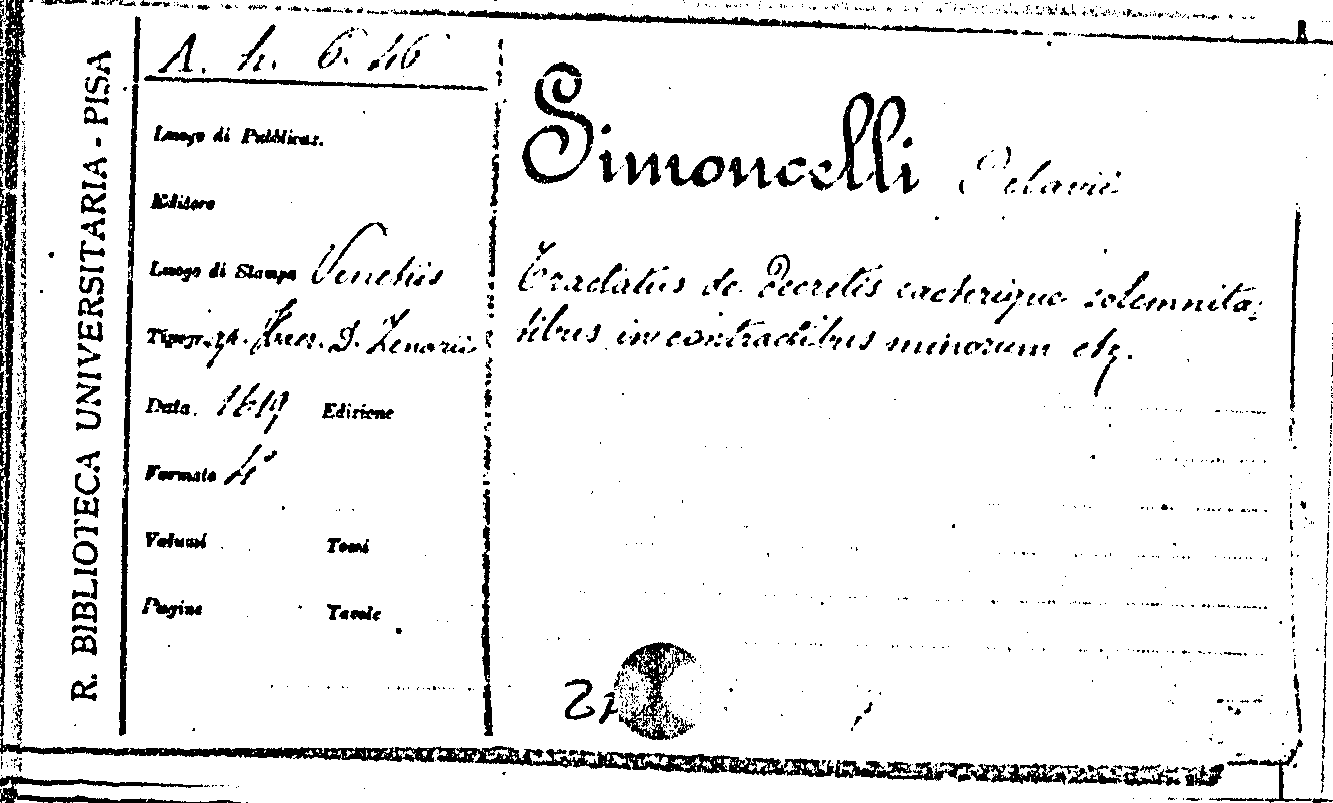 R. BIBLIOTECA UNIVERSITARIA - PISA
A. h. 6. 46
Luogo di Pubblicaz.
Editore
Luogo di Stampa Venetiis
Tipogr. ap. Haer. D. Zenarii
Data 1619 Edizione
Formato 4°
Volumi Tomi
Pagine Tavole
Simoncelli Octavii
Tractatus de Decretis caeterisque solemnita-
tibus in contractibus minorum etc.